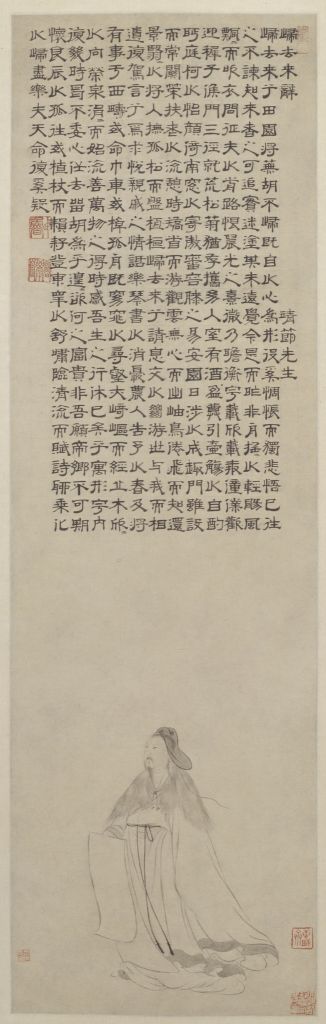 歸去來辭
靖節先生
歸去來兮田園將蕪胡不歸既自以心為形役奚惆悵而獨悲悟已往
之不諫知來者之可追實迷塗其未遠覺今是而昨非舟搖以輕颺風
飄而吹衣問征夫以前路恨晨光之熹微乃瞻衡宇載欣載奔僮僕歡
迎稚子候門三徑就荒松菊猶存攜幼入室有酒盈樽引壺觴以自酌
眄庭柯以怡顏倚南窗以寄傲審容膝之易安園日涉以成趣門雖設
而常關策扶老以流憩時矯首而游觀雲無心而出岫鳥倦飛而知還
景翳翳以將入撫孤松而盤桓歸去來兮請息交以絕游世與我而相
遺復駕言兮焉求悅親戚之情話樂琴書以消憂農人告予以春及將
有事于西疇或命巾車或棹孤舟既窈窕以尋壑亦崎嶇而經丘木欣欣
以向榮泉涓涓而始流善萬物之得時感吾生之行休已矣乎寓形宇內
復幾時曷不委心任去留胡為乎遑遑欲何之富貴非吾願帝鄉不可期
懷良辰以孤往或植杖而耘耔登東皋以舒嘯臨清流而賦詩聊乘化
以歸盡樂夫天命復奚疑